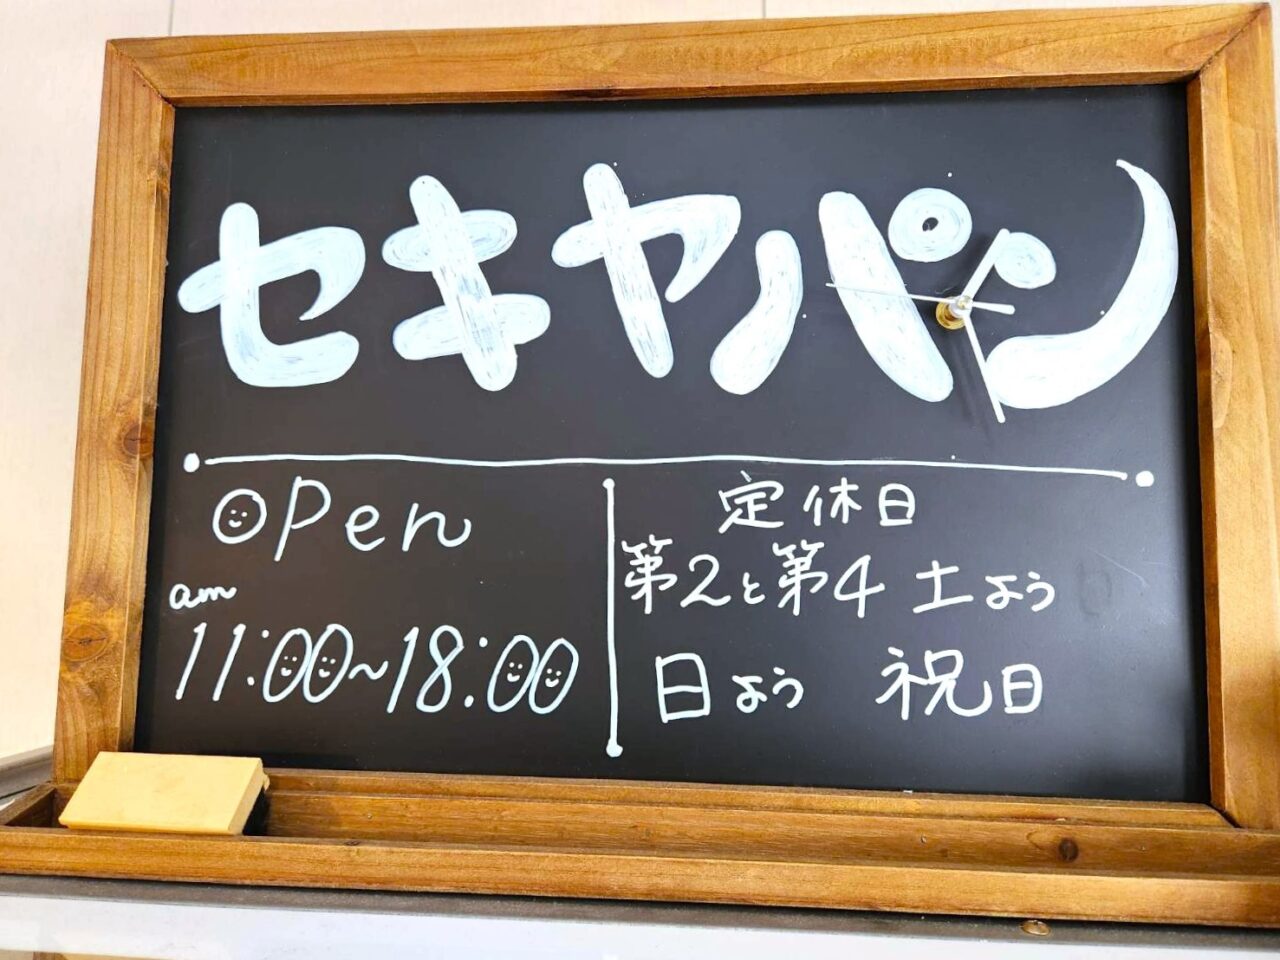 セキヤパン
open
am
11:00~18:00
定休日
第2と第4 土よう
日よう 祝日